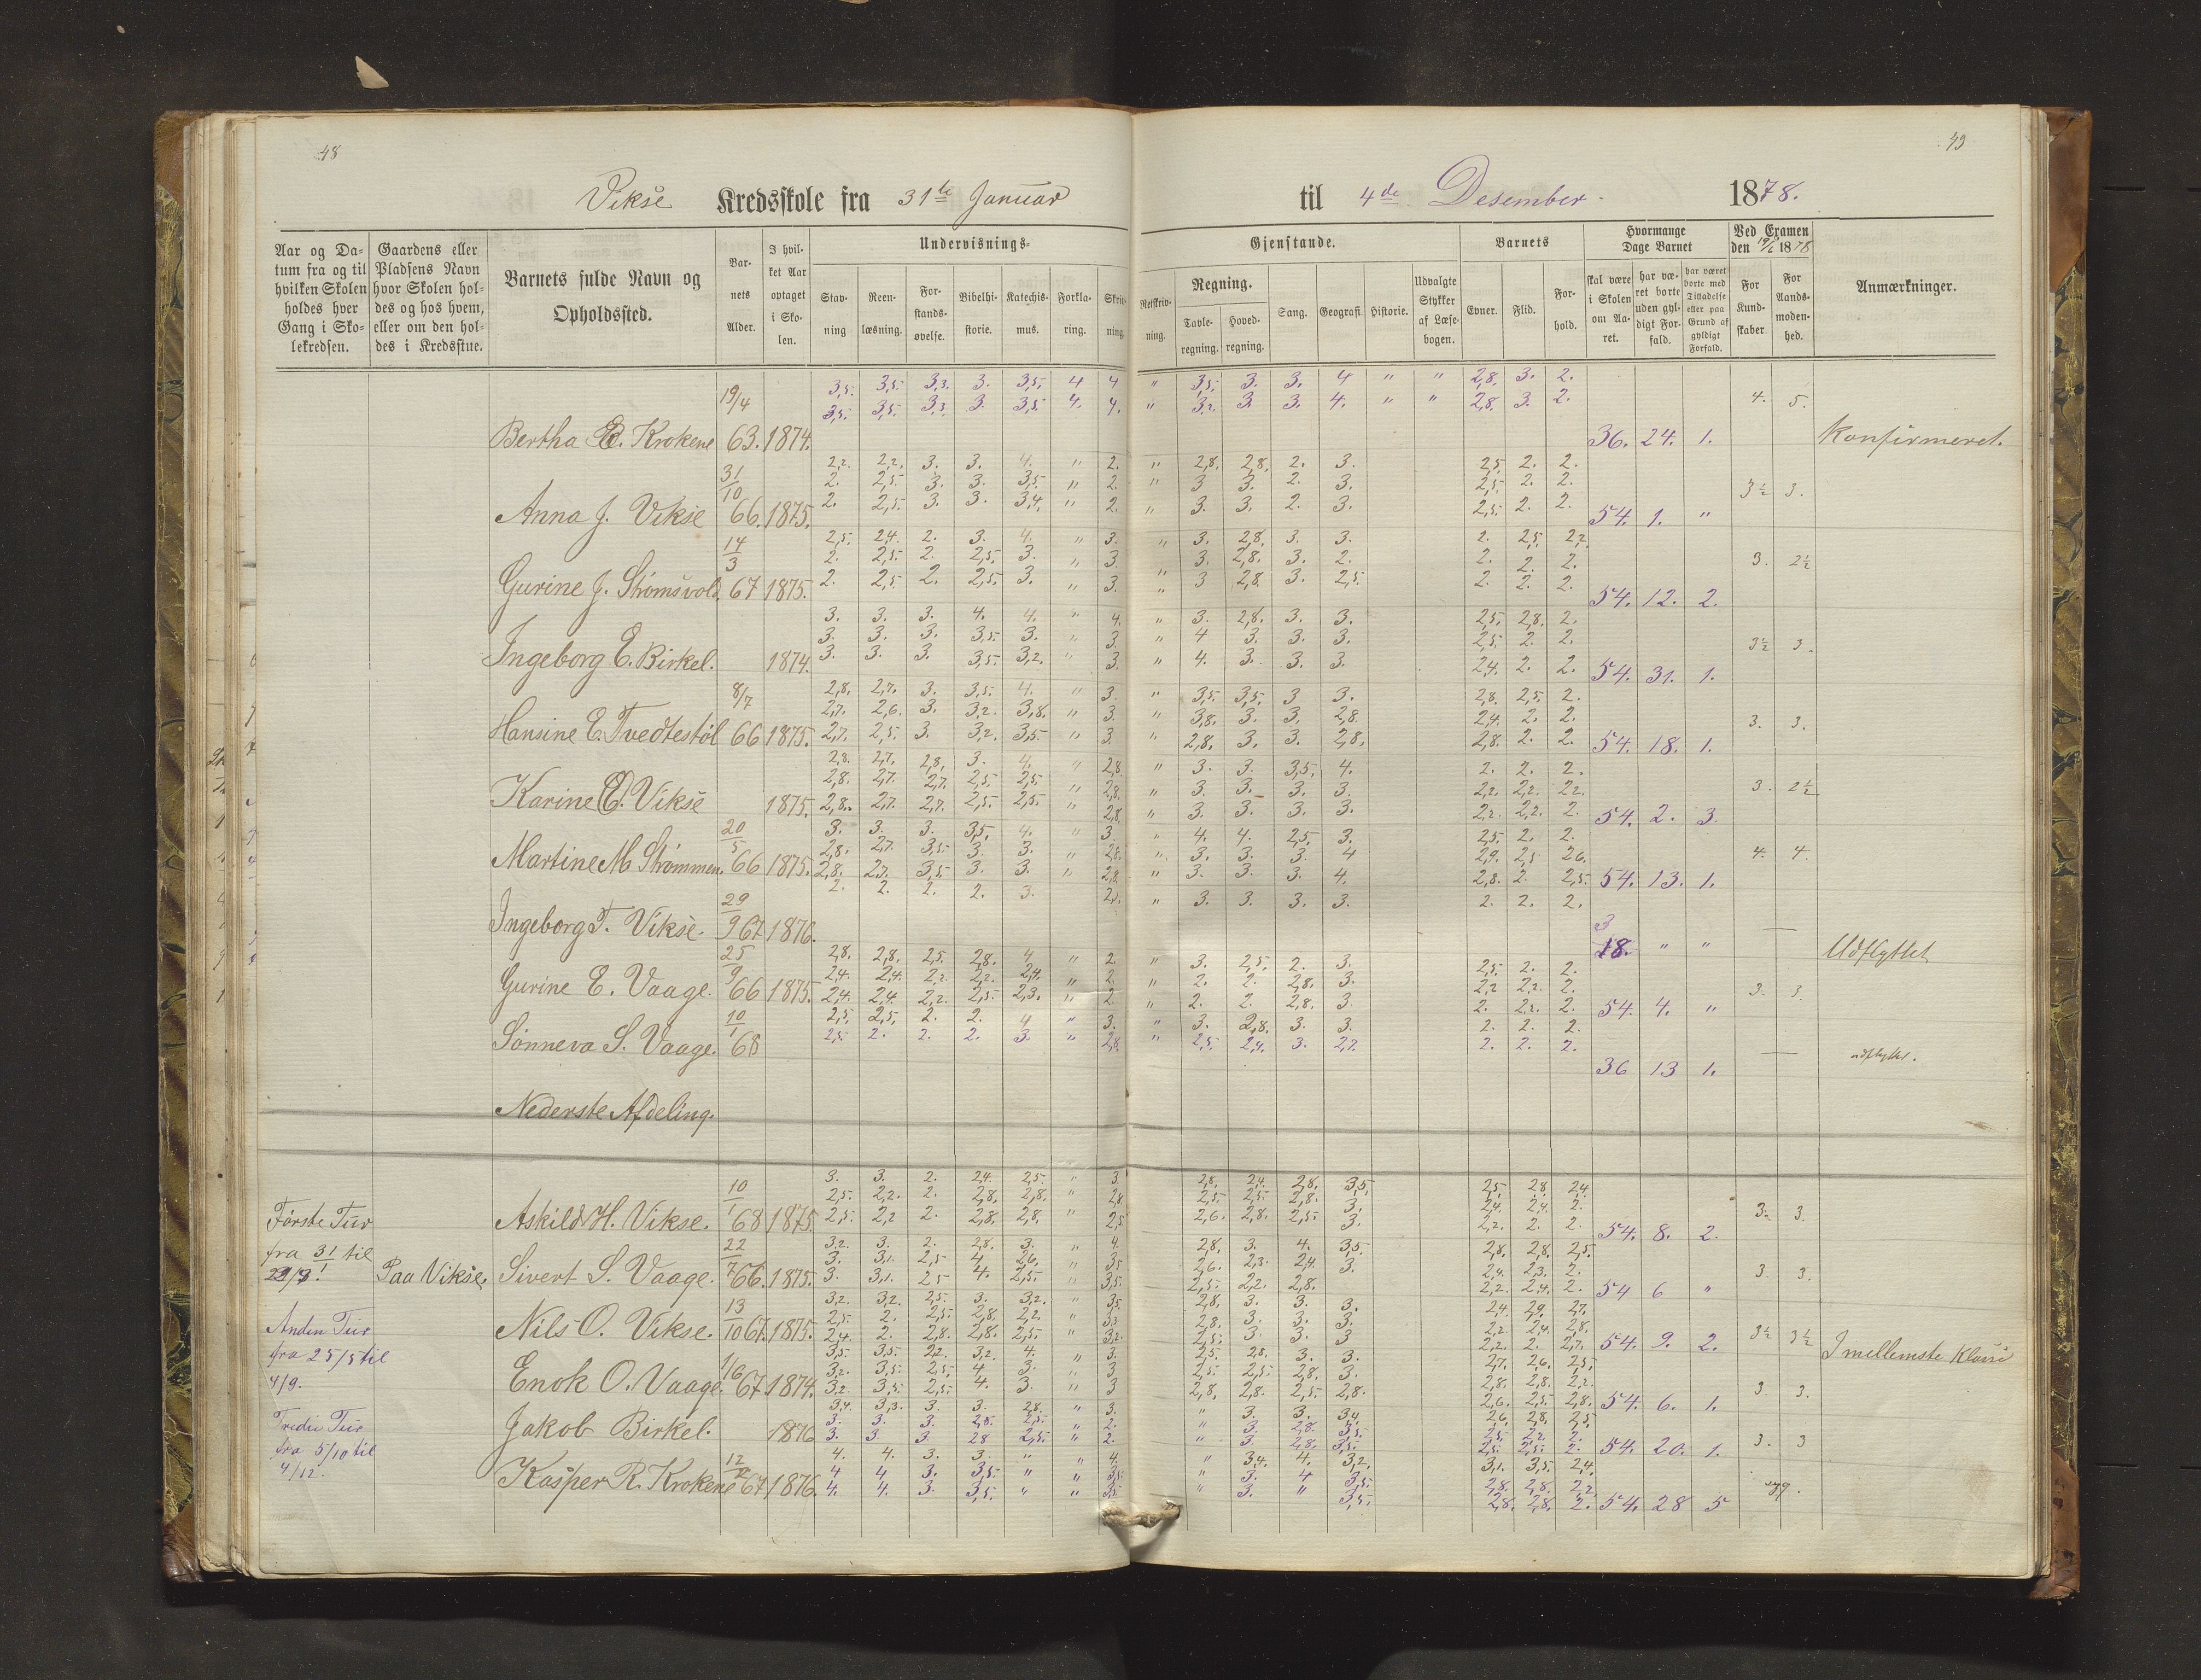 48
49
Vikse Kredsskole fra 31te Januar til 4de Desember 1878.
Aar og Datum fra og til hvilken Skolen holdes hver Gang i Skolekredsen.
Gaardens eller Pladsens Navn hvor Skolen holdes og hos hvem, eller om den holdes i Kredsstue.
Barnets fulde Navn og Opholdssted.
Barnets Alder.
I hvilket Aar optaget i Skolen.
Undervisnings-
Stavning
Reenlæsning.
Forstandsøvelse.
Bibelhistorie.
Katechismus.
Forklaring.
Skrivning.
Gjenstande.
Retskrivning.
Regning.
Tavleregning.
Hovedregning.
Sang.
Geografi.
Historie.
Udvalgte Stykker af Læsebogen.
Barnets
Evner.
Flid.
Forhold.
Hvormange Dage Barnet
skal være i Skolen om Aaret.
har været borte uden gyldigt Forfald.
har været borte med Tilladelse eller paa Grund af gyldigt Forfald.
Ved Examen den 1878
For Kundskaber.
For Aandsmodenhed.
Anmærkninger.
3,5. 3,5. 3,3. 3. 3,5. 4 4 " 3,5. 3. 3. 4 " " 2,8. 3. 2.
19/4 3,5. 3,5. 3,3. 3. 3,5. 4. 4. " 3,2. 3. 3. 4. " " 2,8. 3. 2. 4. 5.
Bertha E. Krokene 63. 1874. 36. 24. 1. Konfirmeret.
2,2. 2,2. 3. 3. 4. " 2. " 2,8. 2,8. 2. 3. 2,5. 2. 2.
31/10 2. 2,5. 3. 3. 3,5. " 2. " 3 3. 2. 3. 2,5. 2. 2. 3½ 3.
Anna J. Vikse 66. 1875. 2. 2,5. 3. 3. 3,4. " 2. " 3. 3. 2. 3. 2,5. 2. 2. 54. 1. "
14/3 2,5. 2,4. 2. 3. 4. " 3. " 3. 2,8. 3. 3. 2. 2,5. 2,2.
2. 2,5. 2. 2,5. 3. " 3. " 3. 2,8. 3. 2. 2. 2. 2. 3. 2½
Gurine J. Strømsvold. 67 1875. 2. 2,5 2. 2,5. 3. " 3. " 3 2,8. 3. 2,5. 2. 2. 2. 54. 12. 2.
3. 3. 3. 4. 4. " 4. " 3. 2,8. 3. 3. 2,5. 2,8. 2.
3. 3. 3. 3,5. 3. " 3. " 4 3. 3. 3. 2,5. 2. 2. 3½ 3.
Ingeborg E. Birkel. 1874. 3. 3. 3. 3,5. 3,2. " 3. " 4. 3. 3. 3. 2,4. 2. 2. 54. 31. 1.
8/7 2,8. 2,7. 3. 3,5. 4. " 3. " 3,5. 3,5. 3 3. 2,8. 2,5. 2.
2,7. 2,6. 3. 3,2. 3,8. " 3. " 3,8. 3. 3. 2,8. 2,4. 2. 2. 3. 3.
Hansine E. Tvedtestøl 66 1875. 2,7. 2,5. 3. 3,2. 3,5. " 3. " 2,8. 3. 3. 2,8. 2,8. 2. 2. 54. 18. 1.
2,8. 2,7. 2,8. 3. 4. " 2,8 " 3. 3. 3,5. 4. 2. 2. 2.
2,8. 2,7. 2,7. 2,5. 2,5. " 2,8. " 3. 3. 3. 3. 2,2. 2,2. 2,2. 3. 2½
Karine E. Vikse 1875. 2,8. 2,7. 2,7. 2,5. 2,5. " 2,8. " 3. 3. 3. 3. 2,2. 2,2. 2. 54. 2. 3.
20/5 3. 3. 3. 3,5. 4. " 3. " 4. 4. 2,5. 3. 2,5. 2. 2.
2,8. 2,7. 3,5. 3. 3. " 2,8. " 3. 3. 3. 4 2,9. 2,5 2,6. 4. 4.
Martine M. Strømmen. 66 1875. 2,8. 2,7. 3,5. 3. 3. " 2,8. " 3. 3. 3. 4. 2,8. 2. 2,5. 54. 13. 1.
29 2. 2. 2. 2. 3. 2. " 3. 3. 3. 3. 2. 2. 2.
Ingeborg T. Vikse. 9 67 1876. 18. " " — Udflyttet
25 2,8. 2,8. 2,5. 2,8. 4 " 2. " 3. 2,5. 2. 3. 2,5. 2. 2.
2,4. 2,4. 2,2. 2,2. 2,4. " 2. " 2. 2. 2,8. 3. 2,2 2,2. 2. 3. 3.
Gurine E. Vaage. 9/66 1875. 2,4. 2,4. 2,2. 2,5. 2,3. " 2. " 2. 2. 2,8. 3 2. 2,2. 2. 54. 4. "
10/1 2,5. 2,5. 2. 2. 4 " 3. " 3. 2,8. 3. 3. 2. 2. 2.
Sønneva S. Vaage. 68 2,5. 2. 2. 2. 3. " 2,8. " 2,5. 2,4. 3. 2,7. 2. 2. 2. 36 13 1. — udflyttet.
Nederste Afdeling.
3. 3. 2. 2,4. 2,5. " 3. 2,8. 2,4. 2,8. 3,5. 2,5. 2,8. 2,4.
10/1 2,5. 2,2. 2. 2,8. 2,8. " 2,8 2,5. 2,5. 2,8. 3. 2,4. 2,4. 2. 3. 3.
Første Tur Askild H. Vikse. 68 1875 2,5. 2,2 2. 2,8. 2,8. " 2,5 2,6. 2,8. 2,5. 3. 2,2. 2. 2. 54. 8. 2.
fra 31/1 til 22 3,2. 3. 2. 2,8. 3. " 4. 2,8. 3. 4. 3,5. 2,8. 2,8. 2,5.
3. 3,1. 2,5. 4 2,6. " 3,5 2,6. 2,3. 2,4. 3. 2,4. 2,3. 2. 3. 3.
Paa Vikse. Sivert S. Vaage. 7/66. 1875. 3. 3,1. 2,5 4. 2,5. " 3,5. 2,5. 2,2. 2,8. 2,2. 2,4. 2. 54 6 "
13 3,2. 3,2. 2,5. 3. 3,2. " 3,5. 2,8. 3. 3. 3. 2,4. 2,9. 2,7.
Anden Tur 2,5. 2. 2,5. 2,8. 2,2. " 3,3. 2,8. 3. 3. 3. 2,2. 2,4. 2,8. 3½ 3½
Nils O. Vikse. 10 67. 1875. 2,4. 2. 2,8. 2,8. 2,5. " 3,2. 2,5. 3. 3. 3 2,2. 2. 2,7. 54. 9. 2. I mellemste Klasse
fra 25/5 til 1/6 3,5. 3,5. 2,2. 3,2. 4. " 3. 2,5. 2,8. 3. 3. 2,7. 2,6. 2,5.
3,2. 3,5. 2,5. 4 3. " 3 2,5. 2,5. 2,8. 3. 2,8. 2,8. 2,2. 3. 3.
4/9. Enok O. Vaage. 67. 1874. 3,2. 3,5. 2,5. 4. 3. " 3 2,8. 2,8. 2,5. 2,8. 2,6. 2,5. 2,8. 54. 6. 1.
3,4. 3,3. 3. 3. 2,8. " 3. " 3. 3. 3,4. 2,6. 2,8. 2,5.
Tredie Tur 3. 3. 3. 2,8. 2,5. " 2. " 3. 2,8. 3,5. 2,5. 2,2. 2. 3. 3
Jakob Birkel. 1876 3. 3 3. 2,8 2,5. " 2. " 3. 2,8. 3,5. 2,5. 2,5. 2. 54. 20. 1.
fra 5/10 til 12 4. 4. 3. 3. " " 4. " 3,4. 4. 3,2. 3,1. 3,5. 2,4.
4/12. 4 4 3. 3,5. " " 3,5. " 3. 4 3,5. 2,8. 2,8. 2,2.
Kasper R. Krokene 67 1876. 4. 4. 3. 3,5. " " 3,5. " 3. " 3,5. 2,8. 2,8. 2. 54. 28 5 syg.